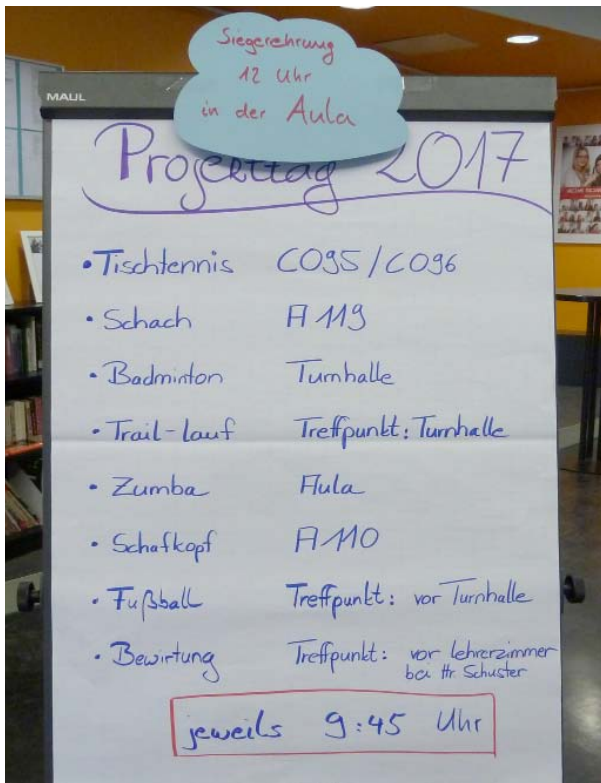 Siegerehrung
12 Uhr
in der Aula
MAUL
Projekttag 2017
• Tischtennis CO95/CO96
• Schach A119
• Badminton Turnhalle
• Trail-lauf Treffpunkt: Turnhalle
• Zumba Aula
• Schafkopf A110
• Fußball Treffpunkt: vor Turnhalle
• Bewirtung Treffpunkt: vor Lehrerzimmer
bei Hr Schuster
jeweils 9:45 Uhr